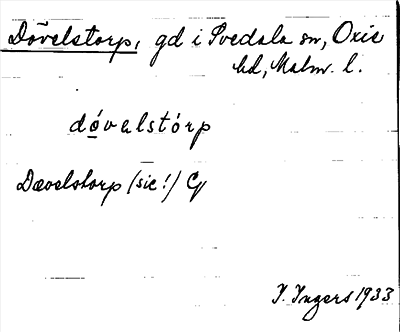 Dövelstorp, gd i Svedala sn, Oxie
hd, Malm. l.
dóvalstórp
Dævelstorp (sic!) G
I. Ingers 1933